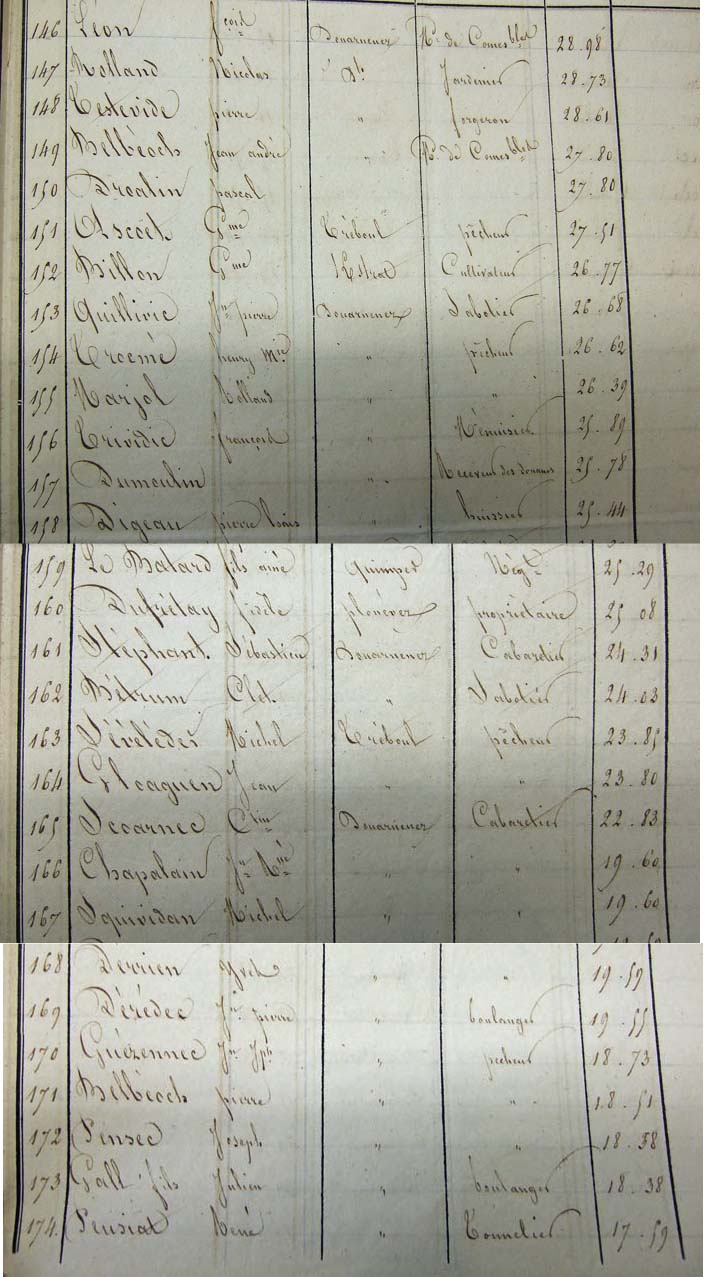 146 Léon fçois Douarnenez Md de Comestbles 28.98
147 Rolland Nicolas do Jardinier 28.73
148 Testevide pierre " forgeron 28.61
149 Belbéoch Jean andré " Md de Comestbles 27.80
150 Droalin pascal 27.80
151 Ascoët Gme Tréboul pêcheur 27.51
152 Billon Gme Cultivateur 26.77
153 Quillivic Jn pierre Douarnenez Sabotier 26.68
154 Trocmé henry Mie " pêcheur 26.62
155 Marjol Rolland " " 26.39
156 Trividic françois " Menuisier 25.89
157 Dumoulin " Receveur des douanes 25.78
158 Digeau pierre louis " huissier 25.44
159 Le Batard fils ainé Quimper Négt 25.29
160 Dufrétay fidèle plonévez propriétaire 25 08
161 Stéphant. Sébastien Douarnenez Cabaretier 24.31
162 Bétrum Clet. " Sabotier 24.03
163 Sévélédér Michel Tréboul pêcheur 23.85
164 Gloaguen Jean " " 23.80
165 Scoarnec Ctin Douarnenez Cabaretier 22.83
166 Chapalain Jn Rné " " 19.60
167 Squividan Michel " " 19.60
168 Derrien Yves " " 19.59
169 Dérédec Jn pierre " boulanger 19.55
170 Guézennec Jn Jph " pêcheur 18.73
171 Belbéoch pierre " " 18.51
172 Pensec Joseph " " 18.38
173 Gall fils Julien " boulanger 18.38
174. René " Tonnelier 17.59